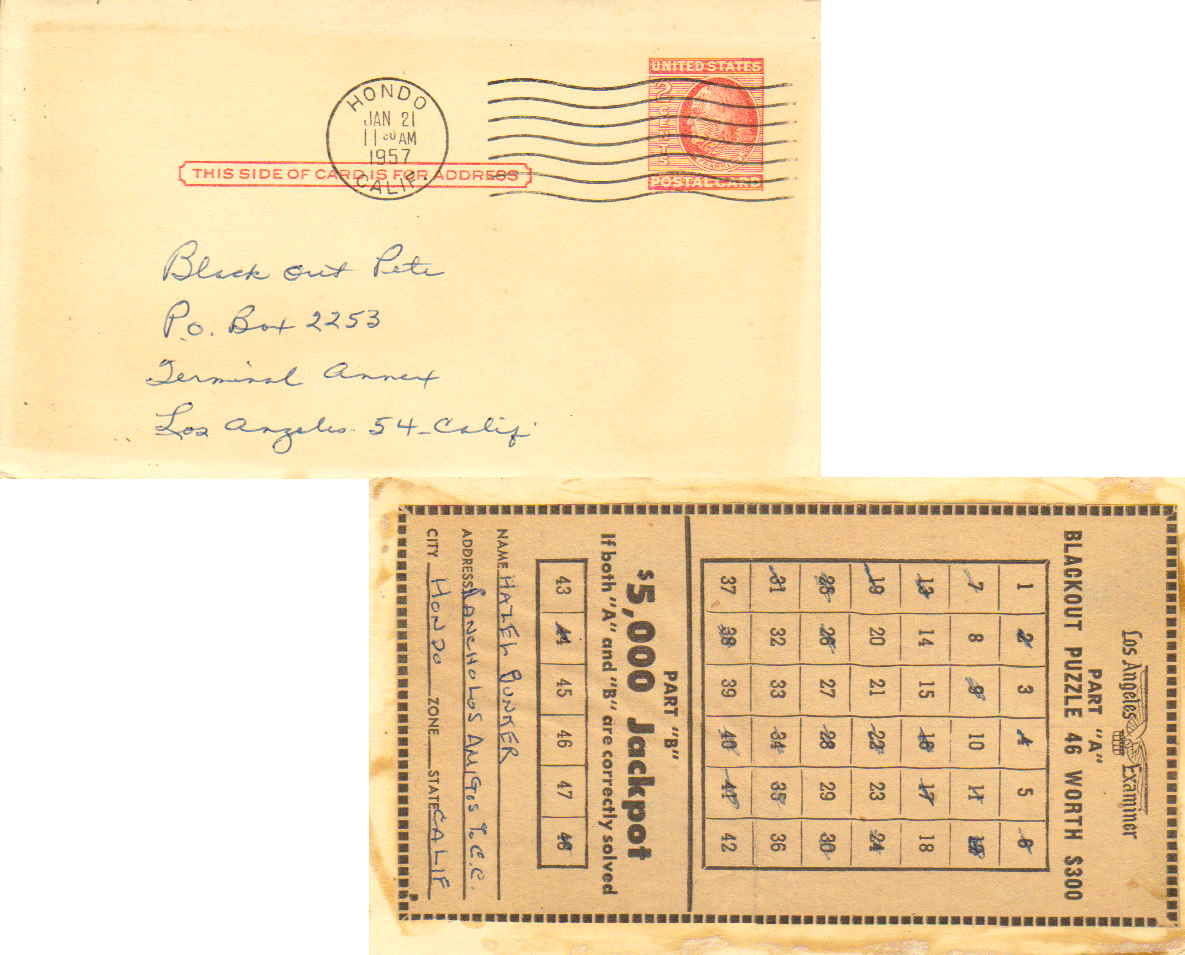 HONDO
JAN 21
11 30 AM
1957
CALIF.
UNITED STATES
2 CENTS
FRANKLIN
POSTAL CARD
THIS SIDE OF CARD IS FOR ADDRESS
Black out Pete
P.O. Box 2253
Terminal Annex
Los Angeles 54 - Calif.
Los Angeles Examiner
PART "A"
BLACKOUT PUZZLE 46 WORTH $300
1 2 3 4 5 6
7 8 9 10 11 12
13 14 15 16 17 18
19 20 21 22 23 24
25 26 27 28 29 30
31 32 33 34 35 36
37 38 39 40 41 42
PART "B"
$5,000 Jackpot
If both "A" and "B" are correctly solved
43 44 45 46 47 48
NAME HAZEL BUNKER
ADDRESS RANCHO LOS AMIGOS % C.C.
CITY HONDO ZONE STATE CALIF